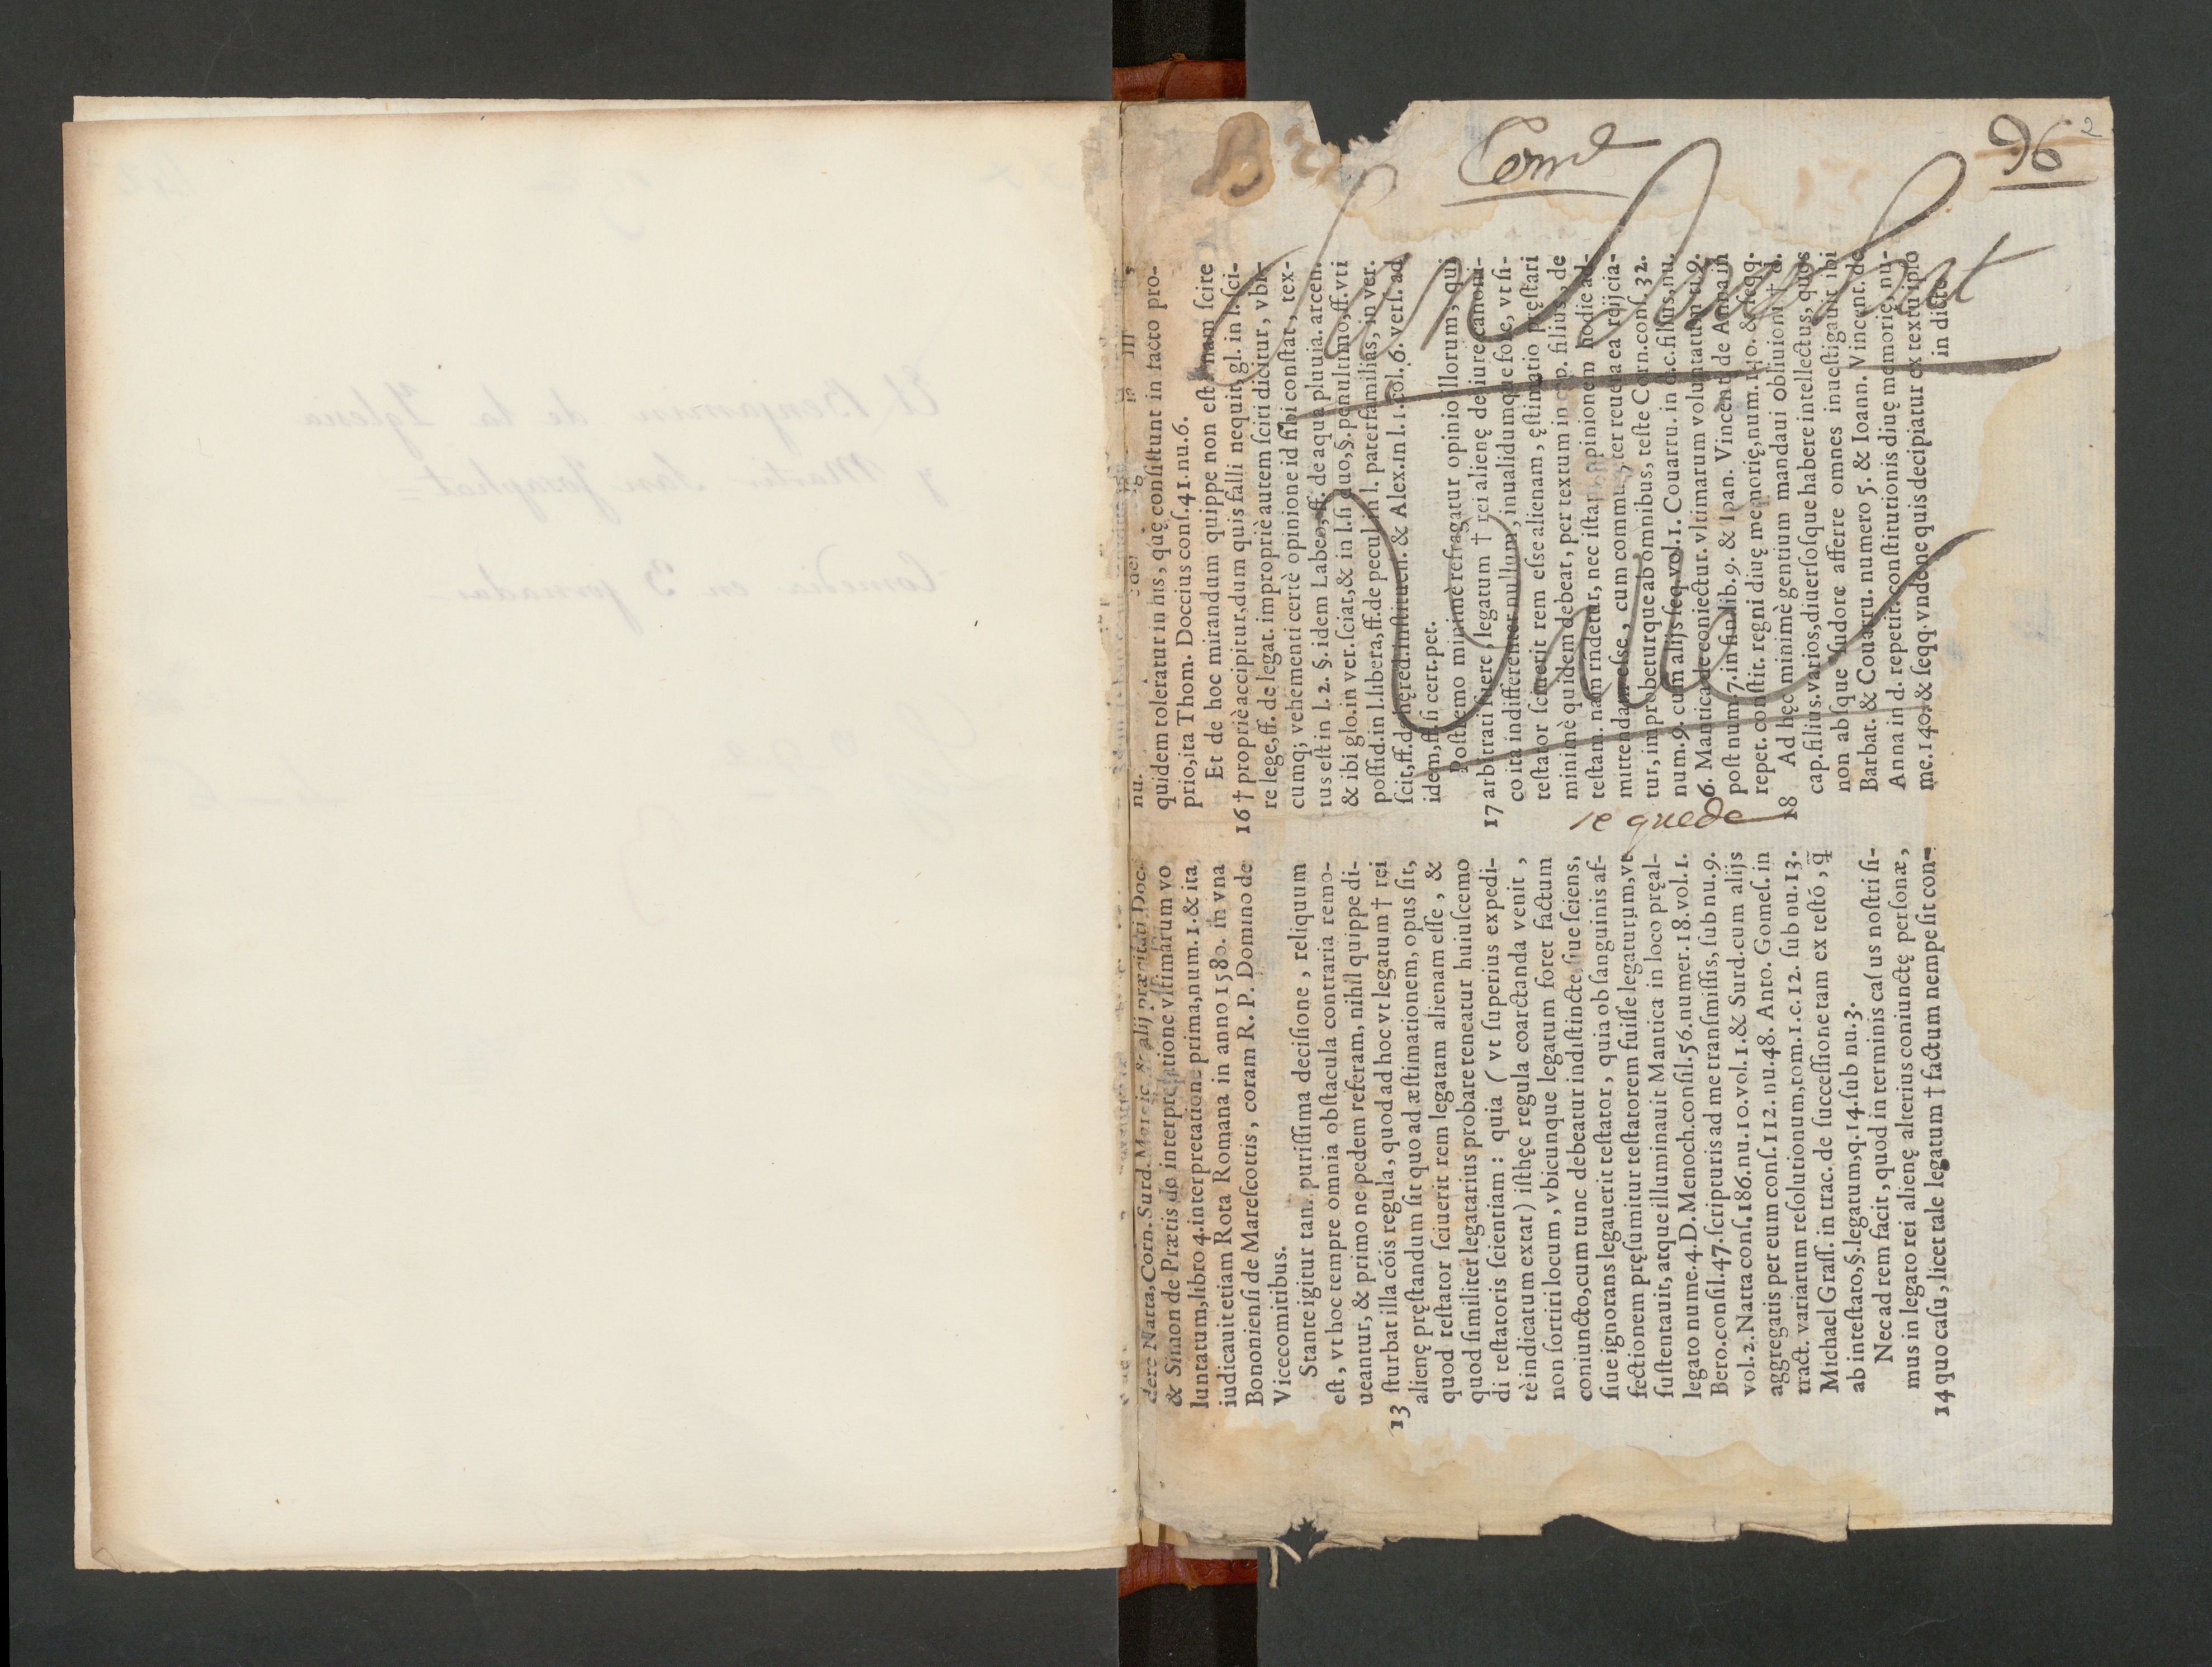 El Benjamin de la Yglesia
y Martir San Josaphat=
Comedia en 3 jornadas
96
2
Com.ᵃ
San Josaphat
se quede
dere Natta, Corn. Surd. & alij præcitati Doc.
& Simon de Prætis de interpretatione vltimarum vo
luntatum, libro 4. interpretatione prima, num. 1. & ita
iudicauit etiam Rota Romana in anno 1580. in vna
Bononienſi de Mareſcottis, coram R. P. Domino de
Vicecomitibus.
Stante igitur tam puriſſima deciſione, reliquum
eſt, vt hoc tempre omnia obſtacula contraria remo-
ueantur, & primo ne pedem referam, nihil quippe di-
13 ſturbat illa cóis regula, quod ad hoc vt legatum † rei
alienę pręſtandum ſit quo ad æſtimationem, opus ſit,
quod teſtator ſciuerit rem legatam alienam eſſe, &
quod ſimiliter legatarius probare teneatur huiuſcemo
di teſtatoris ſcientiam: quia (vt ſuperius expedi-
tè indicatum extat) iſthęc regula coarctanda venit,
non ſortiri locum, vbicunque legatum foret factum
coniuncto, cum tunc debeatur indiſtincte ſiue ſciens,
ſiue ignorans legauerit teſtator, quia ob ſanguinis af-
fectionem pręſumitur teſtatorem fuiſſe legaturum, vt
ſuſtentauit, atque illuminauit Mantica in loco pręal-
legato nume. 4. D. Menoch. conſil. 56. numer. 18. vol. 1.
Bero. conſil. 47. ſcripturis ad me tranſmiſſis, ſub nu. 9.
vol. 2. Natta conſ. 186. nu. 10. vol. 1. & Surd. cum alijs
aggregatis per eum conſ. 112. nu. 48. Anto. Gomeſ. in
tract. variarum reſolutionum, tom. 1. c. 12. ſub nu. 13.
Michael Graſſ. in trac. de ſucceſſione tam ex teſtó, q̃
ab inteſtato, §. legatum, q. 14. ſub nu. 3.
Nec ad rem facit, quod in terminis caſus noſtri ſi-
mus in legato rei alienę alterius coniunctę perſonæ,
14 quo caſu, licet tale legatum † factum nempe ſit con-
nu.
quidem toleratur in his, quę conſiſtunt in facto pro-
prio, ita Thom. Doccius conſ. 41. nu. 6.
Et de hoc mirandum quippe non eſt nam ſcire
16 † propriè accipitur, dum quis falli nequit, gl. in l. ſci-
re lege, ff. de legat. impropriè autem ſciri dicitur, vbi-
cumq; vehementi certè opinione id ſibi conſtat, tex-
tus eſt in l. 2. §. idem Labeo, ff. de aqua pluuia. arcen.
& ibi glo. in ver. ſciat, & in l. ſi duo, §. penultimo, ff. vti
poſſid. in l. libera, ff. de pecul. in l. paterfamilias, in ver.
ſcit, ff. de hęred. inſtituen. & Alex. in l. 1. col. 6. verſ. ad
idem, ff. ſi cert. pet.
Poſtremo minimè refragatur opinio illorum, qui
17 arbitrati fuere, legatum † rei alienę de iure canoni-
co ita indifferenter nullum, inualidumque fore, vt ſi-
teſtator ſciuerit rem eſſe alienam, ęſtimatio pręſtari
minimè quidem debeat, per textum in cap. filius, de
teſtam. nam rndetur, nec iſtam opinionem hodie ad-
mittendam eſſe, cum communiter reuera ea reijcia-
tur, improbeturque ab omnibus, teſte Corn. conſ. 32.
num. 9. cum alijs ſeq. vol. 1. Couarru. in d. c. filius, nu.
6. Mantica de coniectur. vltimarum voluntatum tu. 9.
poſt num. 7. in fi. lib. 9. & Ipan. Vincent. de Anna in
repet. conſtit. regni diuę memorię, num. 140. & ſeqq.
18 Ad hęc minimè gentium mandaui obliuioni † d.
cap. filius. varios, diuerſoſque habere intellectus, quos
non abſque ſudore afferre omnes inueſtigauit ibi
Barbat. & Couarru. numero 5. & Ioann. Vincent. de
Anna in d. repetit. conſtitutionis diuę memorię, nu-
me. 140. & ſeqq. vnde ne quis decipiatur ex textu ipſo
in dicto